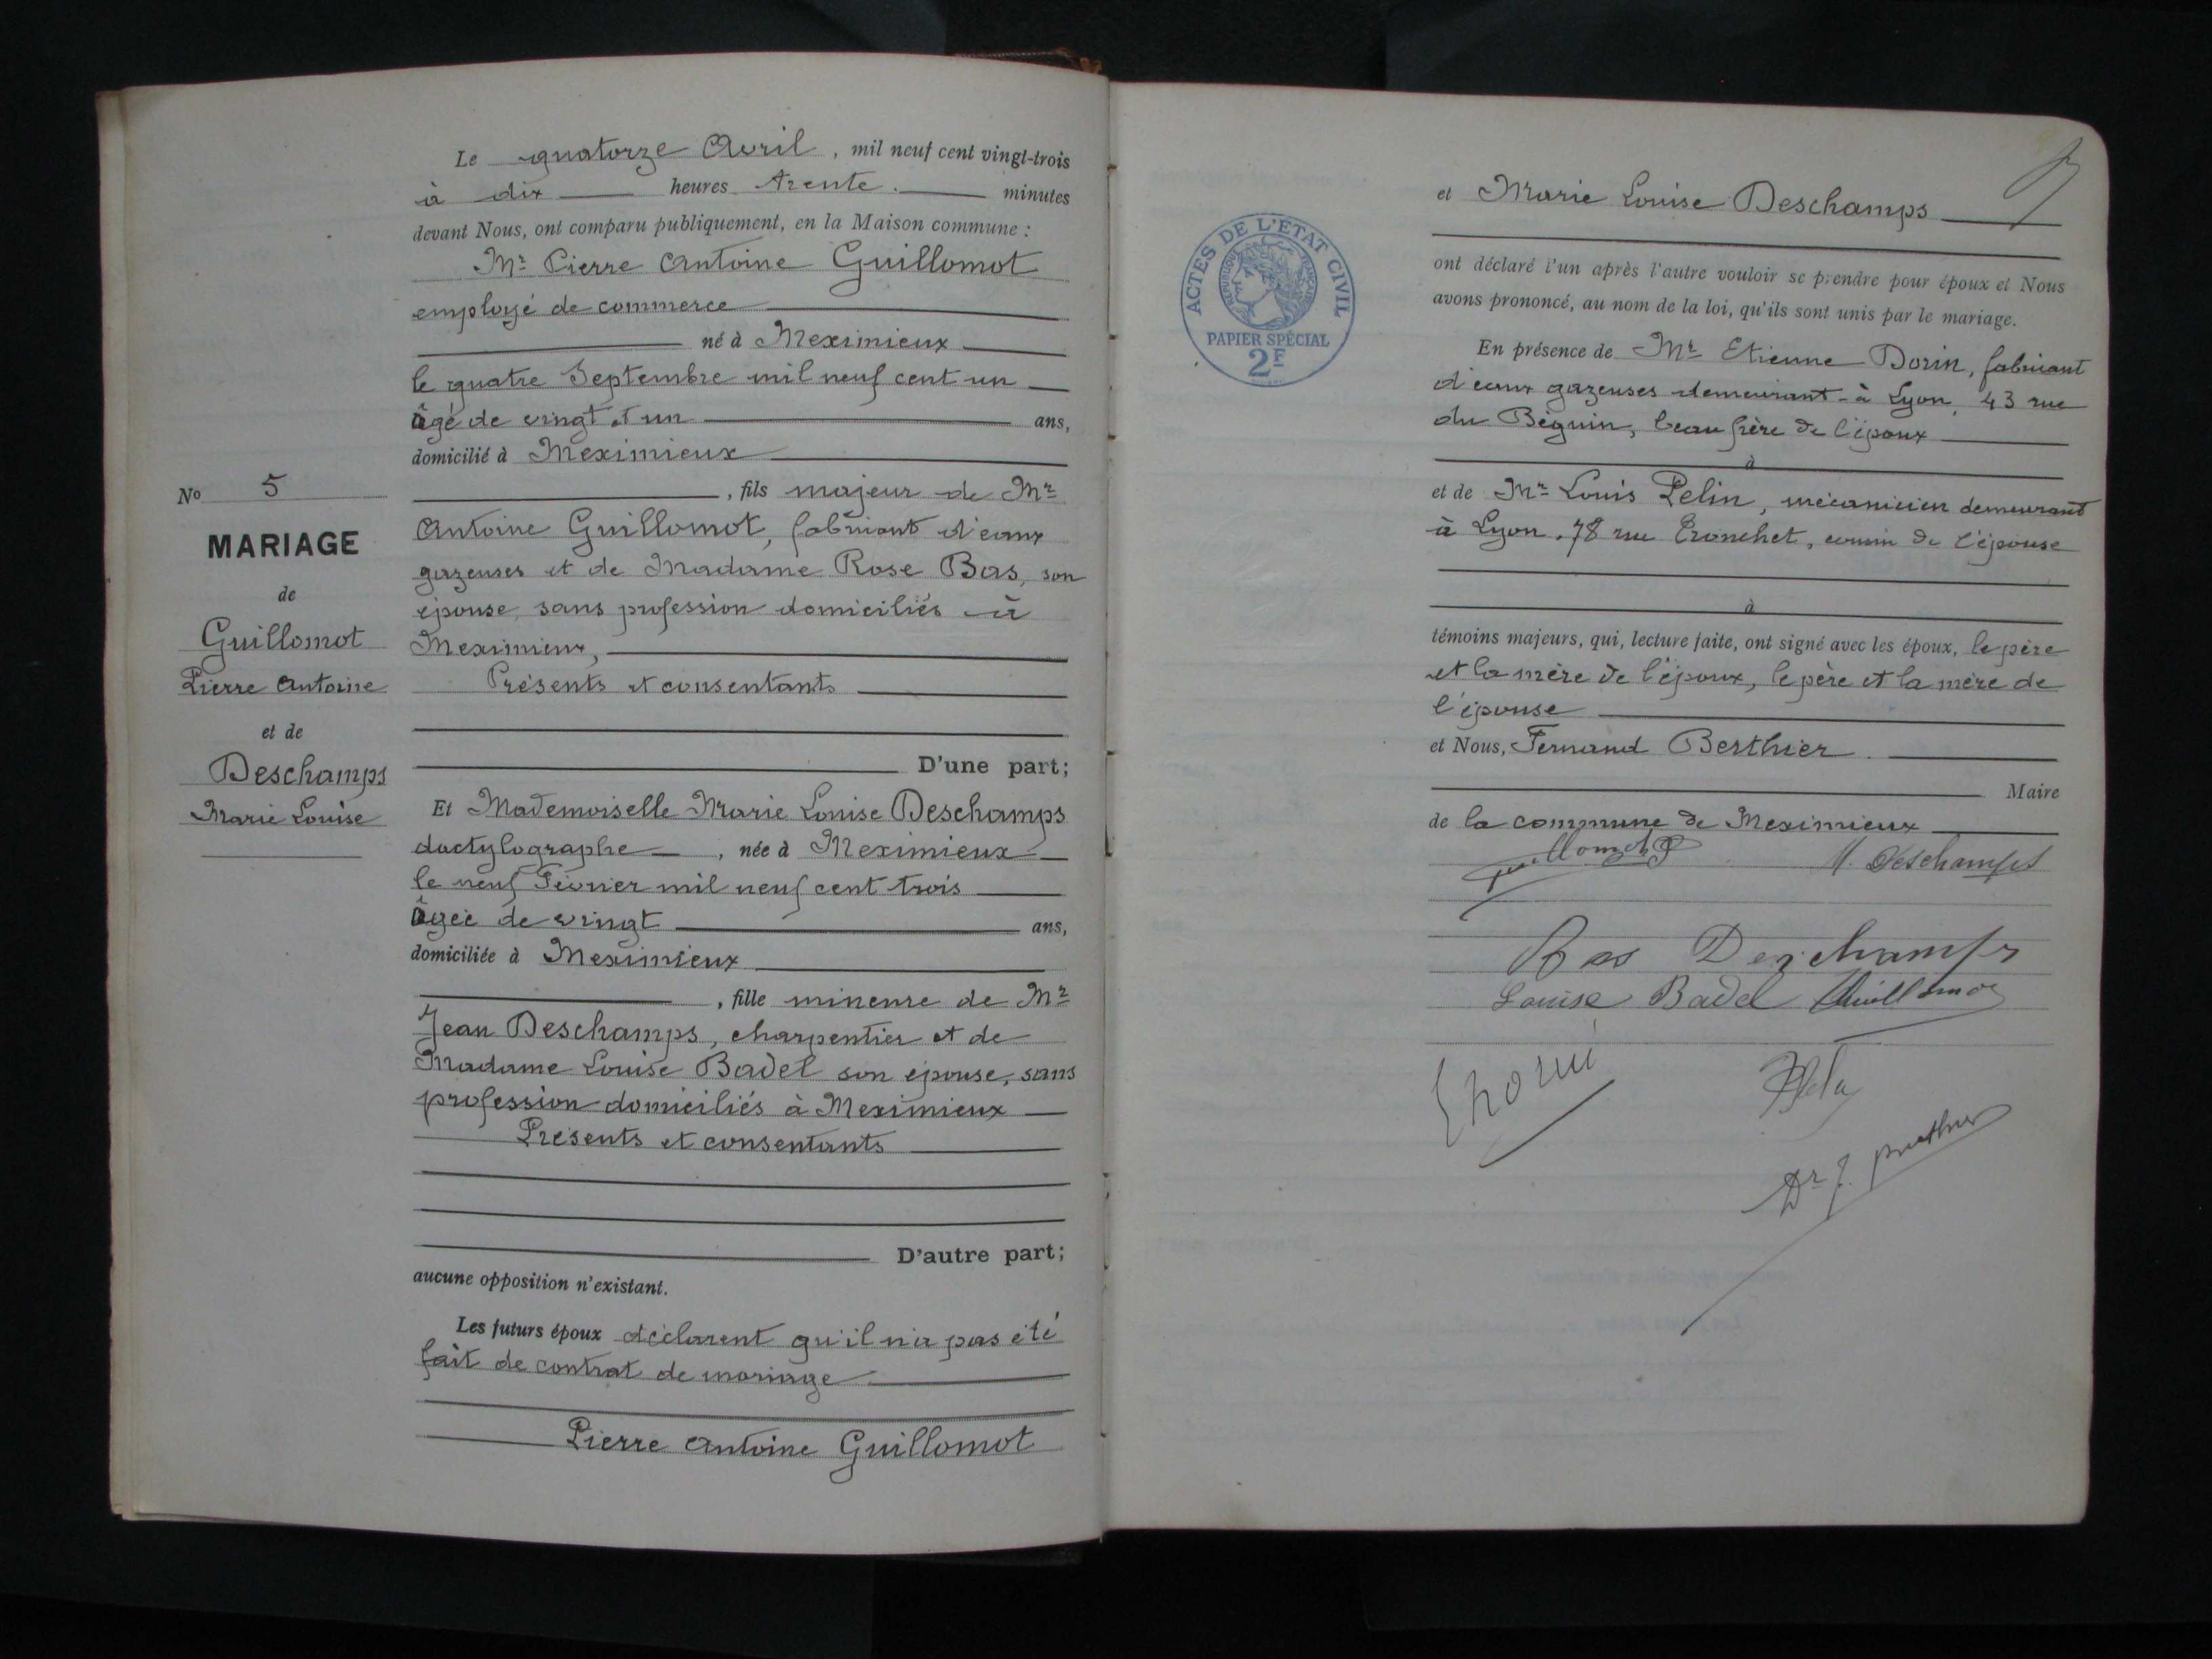 No 5
MARIAGE
de
Guillomot
Pierre Antoine
et de
Deschamps
Marie Louise
Le quatorze Avril, mil neuf cent vingt-trois
à dix heures trente. minutes
devant Nous, ont comparu publiquement, en la Maison commune :
Mr Pierre Antoine Guillomot
employé de commerce
né à Meximieux
le quatre Septembre mil neuf cent un
âgé de vingt et un ans,
domicilié à Meximieux
, fils majeur de Mr
Antoine Guillomot, fabricant d'eaux
gazeuses et de Madame Rose Bas, son
épouse, sans profession domiciliés à
Meximieux,
Présents et consentants
D'une part;
Et Mademoiselle Marie Louise Deschamps
dactylographe, née à Meximieux
le neuf Février mil neuf cent trois
âgée de vingt ans,
domiciliée à Meximieux
, fille mineure de Mr
Jean Deschamps, charpentier et de
Madame Louise Badel son épouse, sans
profession domiciliés à Meximieux
Présents et consentants
D'autre part;
aucune opposition n'existant.
Les futurs époux déclarent qu'il n'a pas été
fait de contrat de mariage
Pierre Antoine Guillomot
et Marie Louise Deschamps
ont déclaré l'un après l'autre vouloir se prendre pour époux et Nous
avons prononcé, au nom de la loi, qu'ils sont unis par le mariage.
ACTES DE L'ETAT CIVIL
REPUBLIQUE FRANÇAISE
PAPIER SPÉCIAL
2F
En présence de Mr Etienne Dorin, fabricant
d'eaux gazeuses demeurant à Lyon, 43 rue
du Béguin, beau frère de l'époux
à
et de Mr Louis Pelin, mécanicien demeurant
à Lyon, 78 rue Tronchet, cousin de l'épouse
à
témoins majeurs, qui, lecture faite, ont signé avec les époux, le père
et la mère de l'époux, le père et la mère de
l'épouse
et Nous, Fernand Berthier
Maire
de la commune de Meximieux
Guillomot P M. Deschamps
Bas Deschamps
Louise Badel Guillomot